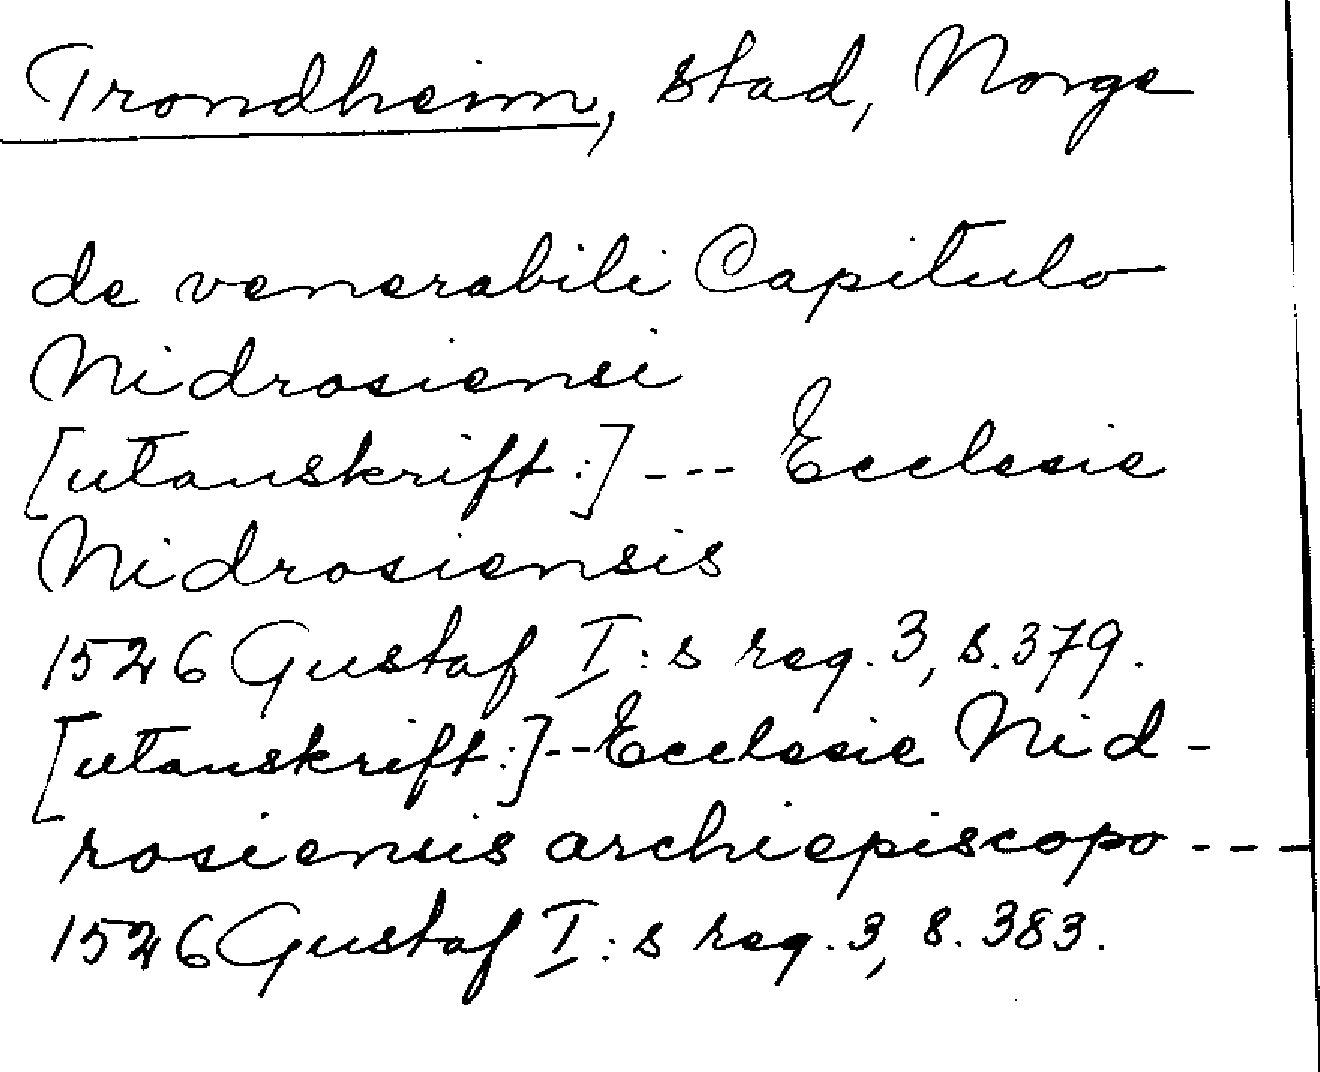 Trondheim, stad, Norge
de venerabili Capitulo
Nidrosiensi
[utanskrift:] --- Ecclesie
Nidrosiensis
1526 Gustaf I:s reg. 3, s. 379.
[utanskrift:] -- Ecclesie Nid-
rosiensis archiepiscopo ---
1526 Gustaf I:s reg. 3, s. 383.